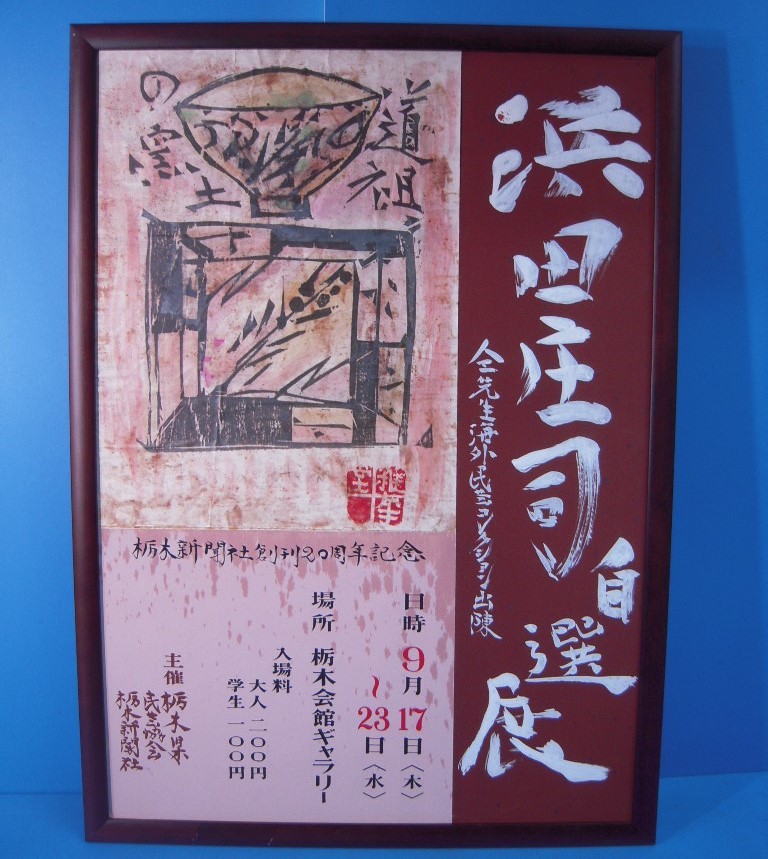 浜田庄司自選展
仝先生海外民芸コレクション出陳
道祖
土
の窯
栃木新聞社創刊20周年記念
日時 9月17日〈木〉
〜23日〈水〉
場所 栃木会館ギャラリー
入場料
大人 二〇〇円
学生 一〇〇円
主催 栃木県
民芸協会
栃木新聞社